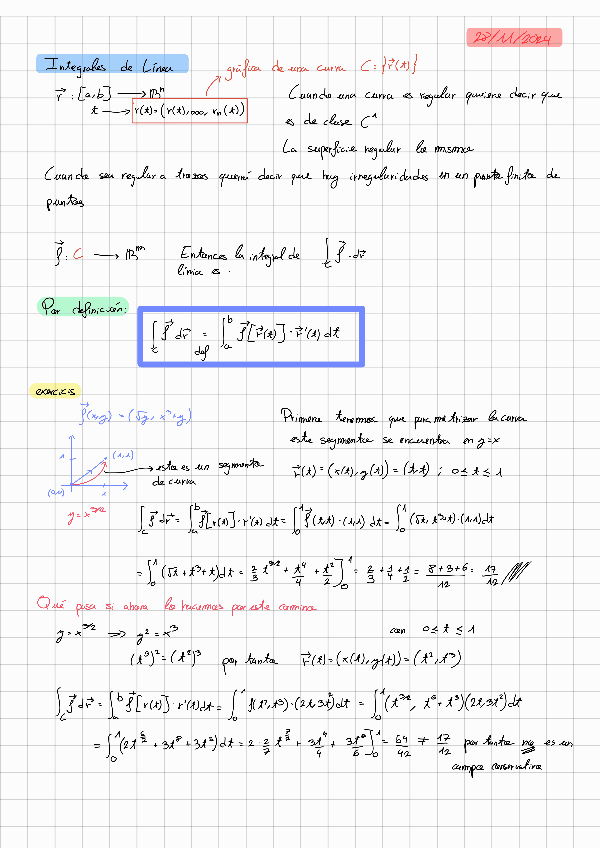 28/11/2024
Integrales de Línea
gráfica de una curva C: {r⃗(t)}
r⃗ : [a,b] ⟶ ℝⁿ
t ⟶ r(t)=(r(t),..., rₙ(t))
Cuando una curva es regular quiere decir que
es de clase C¹
La superficie regular lo mismo
Cuando sea regular a trozos querrá decir que hay irregularidades en un finito de
puntos
f⃗ : C ⟶ ℝᵐ Entonces la integral de
línea es. ∫ f⃗ · dr⃗
Por definición:
∫ f⃗ dr⃗ =def ∫ₐᵇ f⃗[r⃗(t)] · r⃗'(t) dt
f⃗(x,y) = (√y, x³+y)
1
(1,1)
(0,0)
1
este es un segmento
de curva
y = x^3/2
Primero tenemos que parametrizar la curva
este segmento se encuentra en y=x
r⃗(t) = (x(t), y(t)) = (t,t) ; 0 ≤ t ≤ 1
∫_C f⃗ dr⃗ = ∫ₐᵇ f⃗[r(t)] · r'(t) dt = ∫₀¹ f⃗(t,t) · (1,1) dt = ∫₀¹ (√t, t³+t) · (1,1) dt
= ∫₀¹ (√t + t³ + t) dt = 2/3 t^3/2 + t⁴/4 + t²/2 ]₀¹ = 2/3 + 1/4 + 1/2 = 8+3+6/12 = 17/12
Qué pasa si ahora lo hacemos por este camino
y = x^3/2 ⟹ y² = x³
con 0 ≤ t ≤ 1
(t³)² = (t²)³ por tanto r⃗(t) = (x(t), y(t)) = (t², t³)
∫_C f⃗ dr⃗ = ∫ₐᵇ f⃗[r(t)] · r'(t) dt = ∫₀¹ f(t², t³) · (2t, 3t²) dt = ∫₀¹ (t^3/2, t⁶ + t³)(2t, 3t²) dt
= ∫₀¹ (2t^5/2 + 3t⁸ + 3t⁵) dt = 2 · 2/7 t^7/2 + 3t⁹/9 + 3t⁶/6 ]₀¹ = 64/42 ≠ 17/12 por tanto no es un
campo conservativo